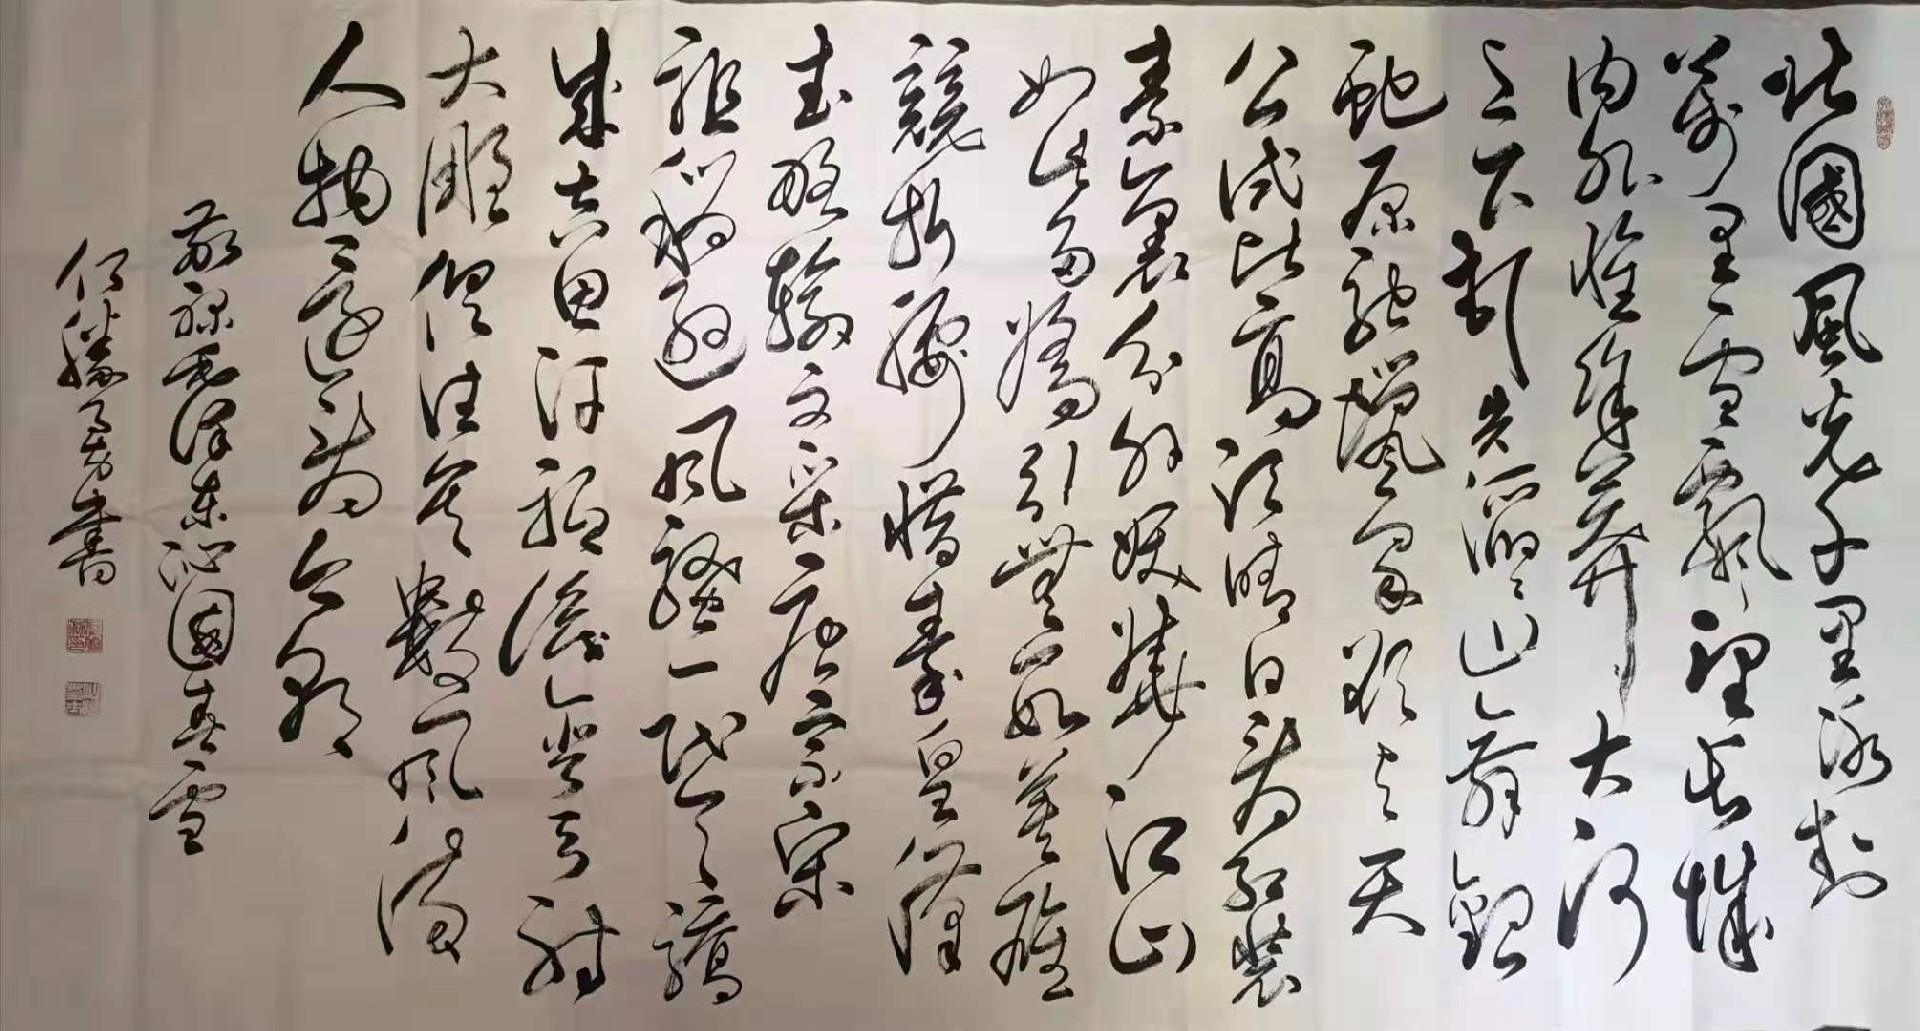 北國風光千里冰封
萬里雪飄望長城
内外惟餘莽莽大河
上下頓失滔滔山舞銀
蛇原馳蠟象欲與天
公試比高須晴日看紅裝
素裹分外妖嬈江山
如此多嬌引無數英雄
競折腰惜秦皇漢
武略輸文采唐宗宋
祖稍遜風騷一代天驕
成吉思汗祗識彎弓射
大雕俱往矣數風流
人物還看今朝
敬錄毛澤東沁園春雪
書